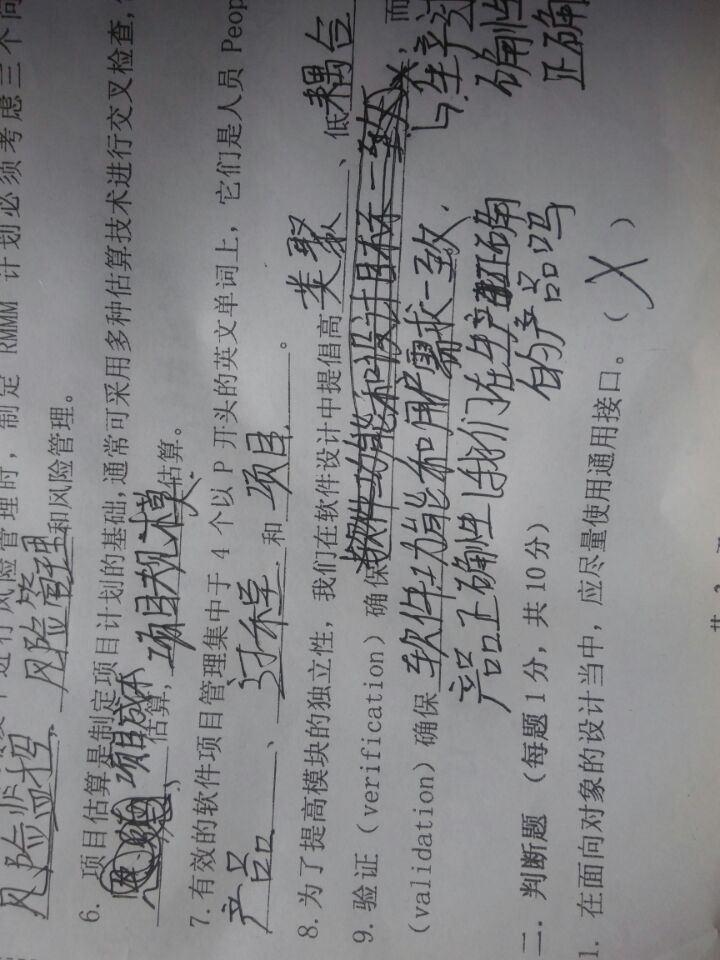 管理时,制定 RMMM 计划必须考虑三个问
风险监控、风险管理和风险管理。
6. 项目估算是制定项目计划的基础,通常可采用多种估算技术进行交叉检查,
项目成本估算,项目规模估算。
7. 有效的软件项目管理集中于 4 个以 P 开头的英文单词上,它们是人员 Peop
产品、过程和项目。
8. 为了提高模块的独立性,我们在软件设计中提倡高类聚、低耦合
9. 验证(verification)确保软件功能和设计目标一致,而
(validation)确保软件功能和用户需求一致.
产品正确性 我们在生产正确
的产品吗
生产过
确性
正确
二. 判断题 (每题 1 分,共 10 分)
1. 在面向对象的设计当中,应尽量使用通用接口。(X)